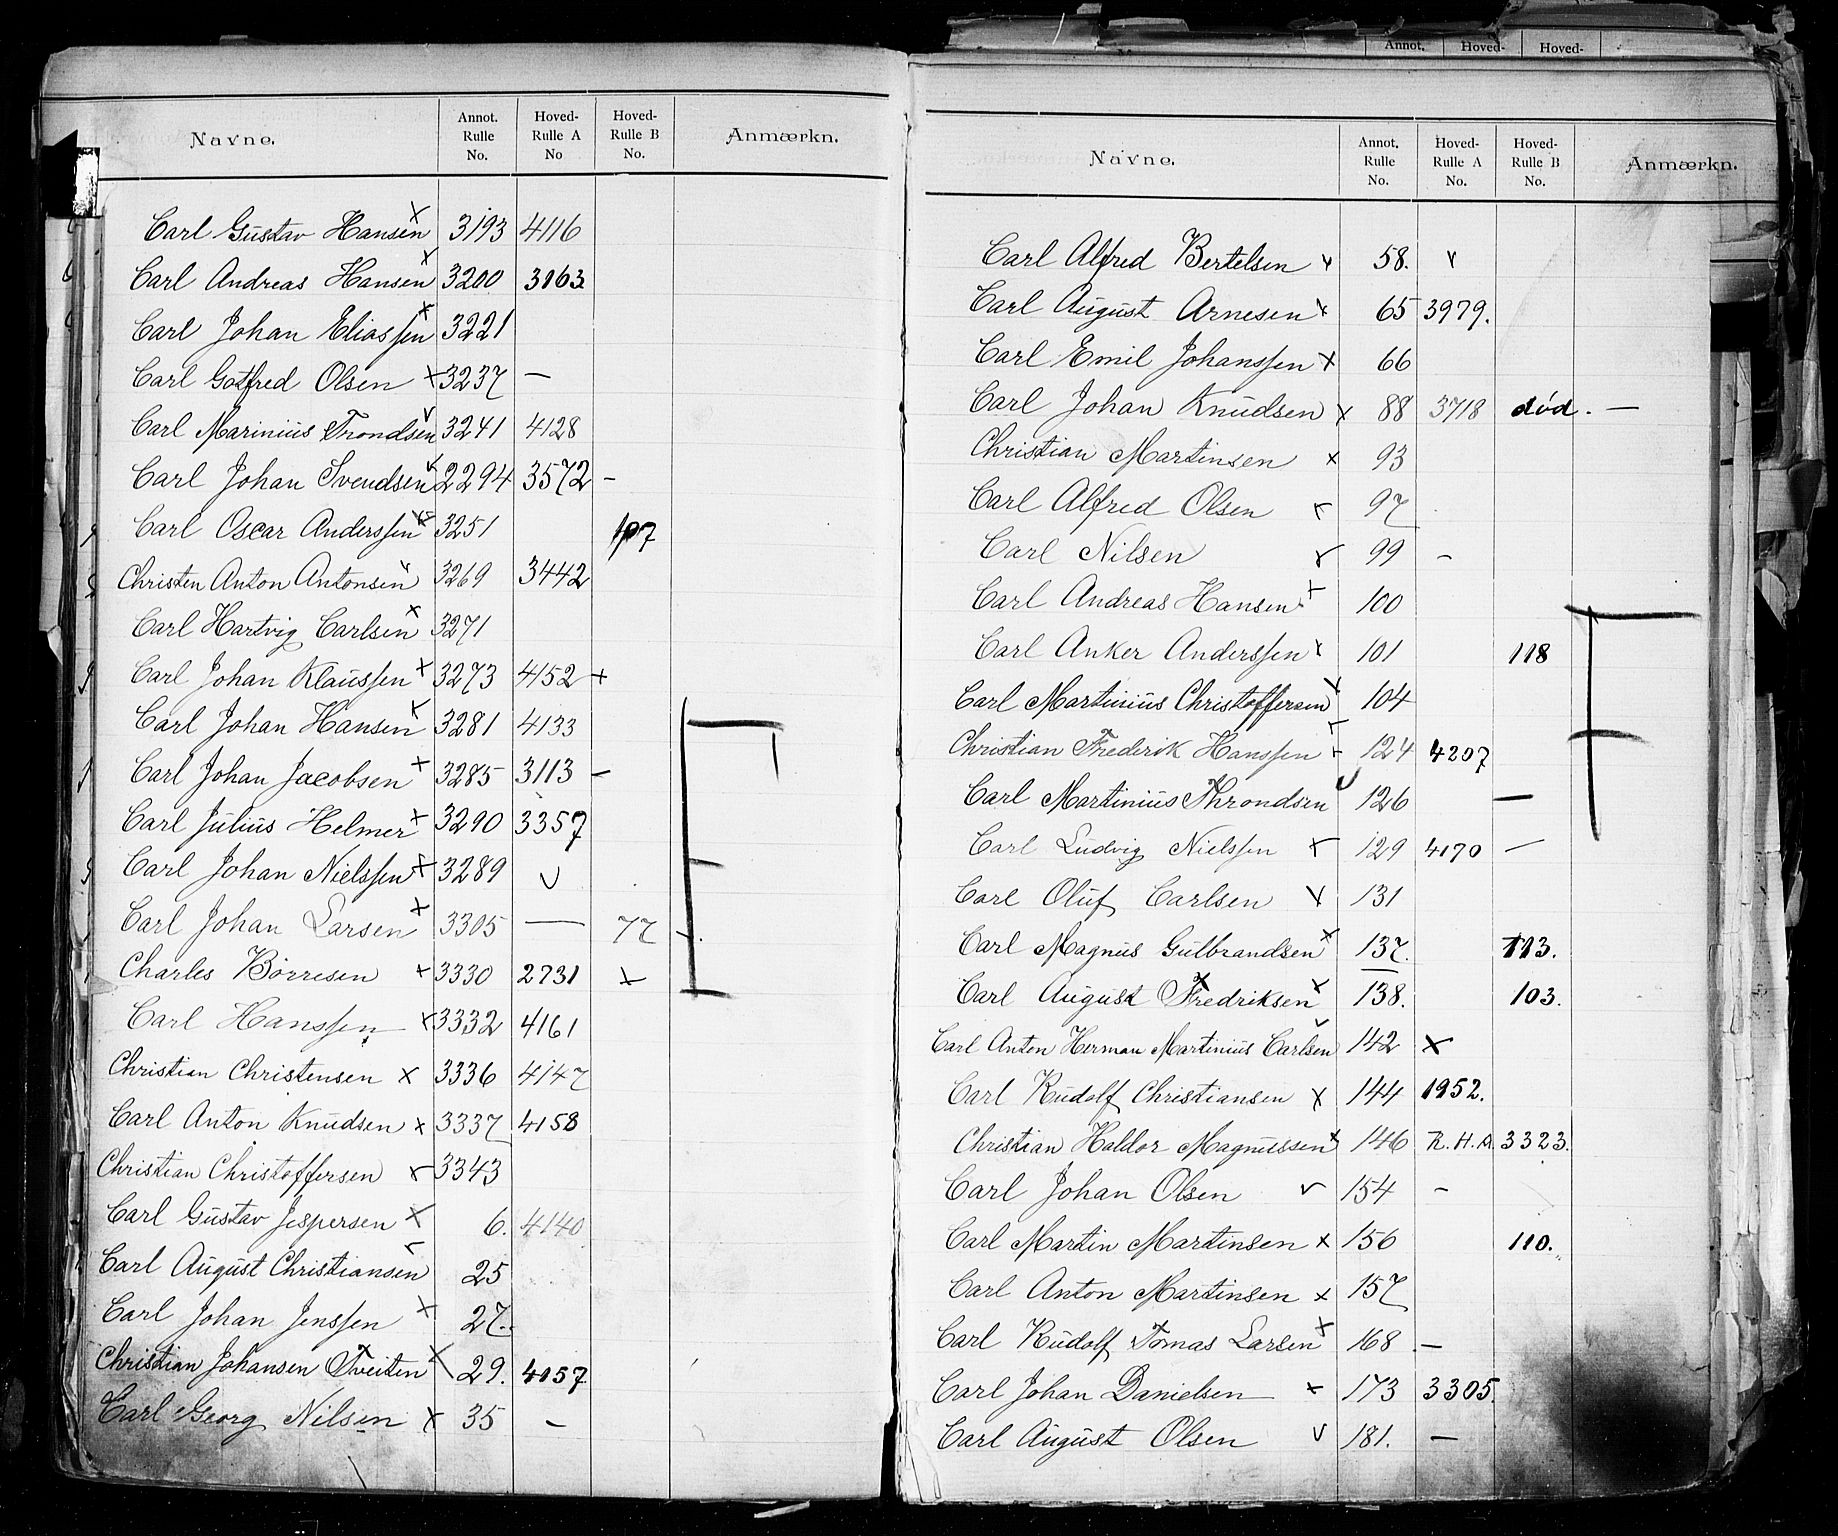 Navne. Annot. Rulle No. Hoved-Rulle A No Hoved-Rulle B No. Anmærkn.
Carl Gustav Hansen x 3193 4116
Carl Andreas Hansen x 3200 3963
Carl Johan Eliassen x 3221
Carl Gotfred Olsen x 3237 —
Carl Marinius Trondsen v 3241 4128
Carl Johan Svendsen x 2294 3572 –
Carl Oscar Anderssen x 3251 107
Christen Anton Antonsen x 3269 3442
Carl Hartvig Carlsen x 3271
Carl Johan Klaussen x 3273 4152 x
Carl Johan Hansen x 3281 4133
Carl Johan Jacobsen x 3285 3113 –
Carl Julius Helmer x 3290 3357
Carl Johan Nielssen x 3289 v
Carl Johan Larsen x 3305 — 77
Charles Børresen x 3330 2731 x
Carl Hanssen x 3332 4161
Christian Christensen x 3336 4147
Carl Anton Knudsen x 3337 4158
Christian Christoffersen x 3343
Carl Gustav Jespersen x 6. 4140
Carl August Christiansen x 25
Carl Johan Jenssen x 27.
Christian Johansen Tveiten x 29. 4057
Carl Georg Nilsen x 35 –
Annot. Hoved- Hoved-
Navne. Annot. Rulle No. Hoved-Rulle A No. Hoved-Rulle B No. Anmærkn.
Carl Alfred Bertelsen x 58. v
Carl August Arnesen x 65 3979.
Carl Emil Johanssen x 66
Carl Johan Knudsen x 88 3718 død. —
Christian Martinsen x 93
Carl Alfred Olsen x 97
Carl Nilsen x 99 –
Carl Andreas Hansen x 100
Carl Anker Anderssen x 101 118
Carl Martinius Christoffersen x 104
Christian Frederik Hanssen x 124 4207
Carl Martinius Throndsen v 126 —
Carl Ludvig Nielssen x 129 4170 —
Carl Oluf Carlsen v 131
Carl Magnus Gulbrandsen x 137. 113.
Carl August Fredriksen x 138. 103.
Carl Anton Herman Martinius Carlsen v 142 x
Carl Rudolf Christiansen x 144 1952.
Christian Haldor Magnussen x 146 R.H.A. 3323.
Carl Johan Olsen v 154 –
Carl Martin Martinsen x 156 110.
Carl Anton Martinsen x 157
Carl Rudolf Tomas Larsen x 168 –
Carl Johan Danielsen x 173 3305.
Carl August Olsen v 181. —